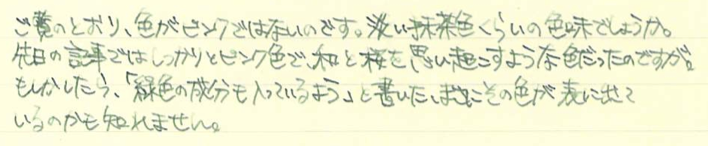 ご覧のとおり、色がピンクではないのです。淡い抹茶色くらいの色味でしょうか。
先日の記事ではしっかりとピンク色で、和と桜を思い起こすような色だったのですが。
もしかしたら、「緑色の成分も入っているよう」と書いた、まさにその色が表に出て
いるのかも知れません。